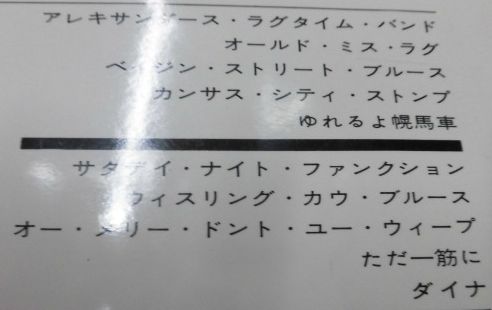 アレキサンダース・ラグタイム・バンド
オールド・ミス・ラグ
ベイジン・ストリート・ブルース
カンサス・シティ・ストンプ
ゆれるよ幌馬車
サタデイ・ナイト・ファンクション
ウィスリング・カウ・ブルース
オー・メリー・ドント・ユー・ウィープ
ただ一筋に
ダイナ